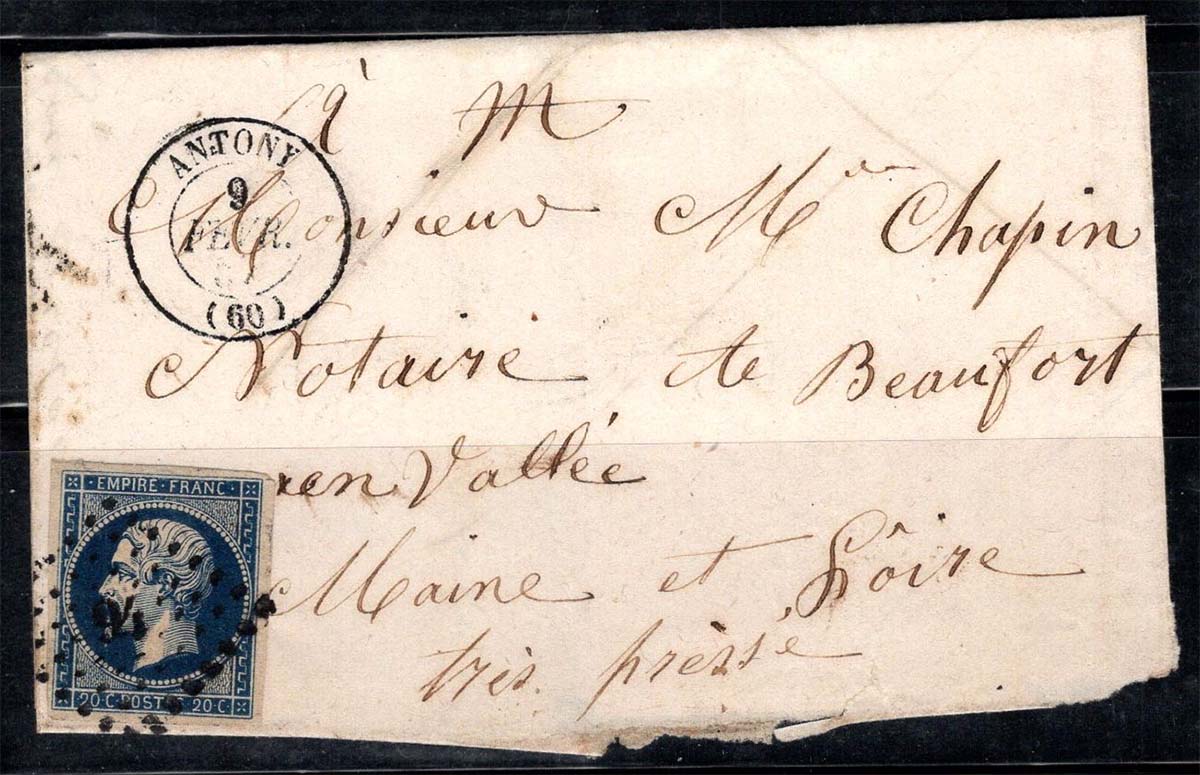 à M
ANTONY
9
FEVR.
(60)
Monsieur Me Chapin
Notaire de Beaufort
en Vallée
Maine et Lôire
très pressé
EMPIRE FRANC
94
20·C·POSTES 20·C